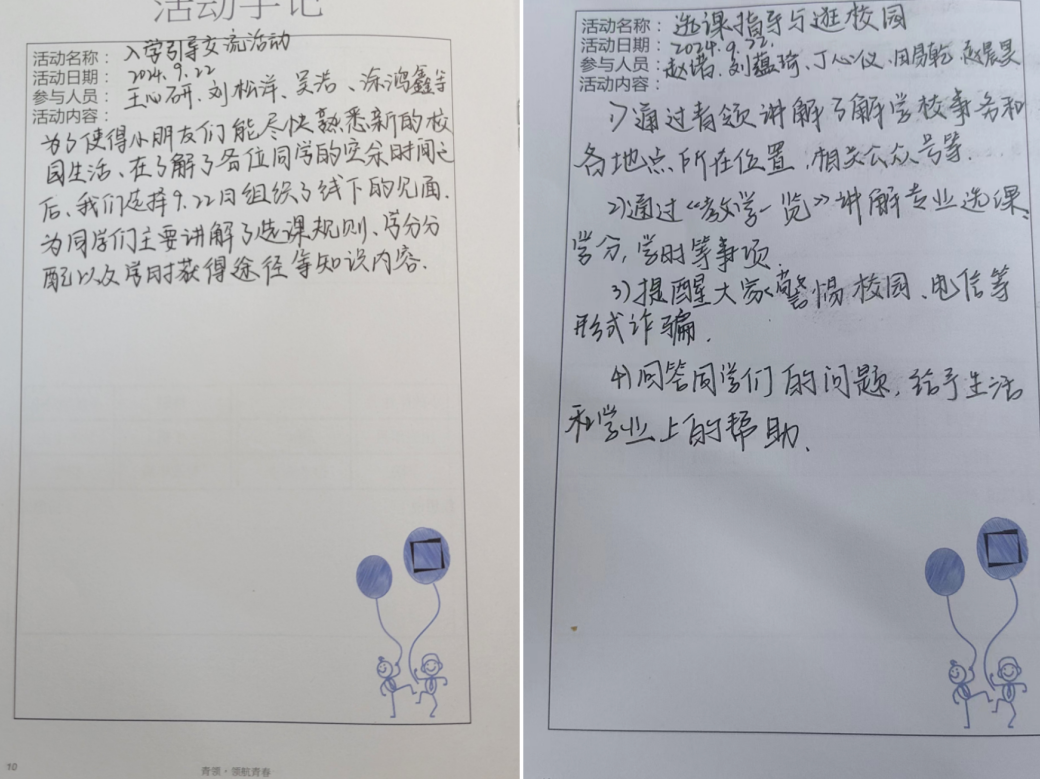 活动手记
活动名称： 入学引导交流活动
活动日期： 2024.9.22
参与人员： 王心研、刘松洋、吴浩、涂鸿鑫等
活动内容：
为了使得小朋友们能尽快熟悉新的校
园生活、在了解了各位同学的空余时间之
后、我们选择9.22日组织了线下的见面.
为同学们主要讲解了选课规则、学分分
配以及学时获得途径等知识内容.
10
青领·领航青春
活动名称： 选课指导与逛校园
活动日期： 2024.9.22.
参与人员： 赵诺、刘蕴琦、丁心仪、田易乾、赵晨昊
活动内容：
1)通过者领讲解了解学校事务和
各地点所在位置，相关公众号等.
2)通过《教学一览》讲解专业选课、
学分，学时等事项.
3)提醒大家警惕校园、电信等
形式诈骗.
4)回答同学们的问题，给予生活
和学业上的帮助.